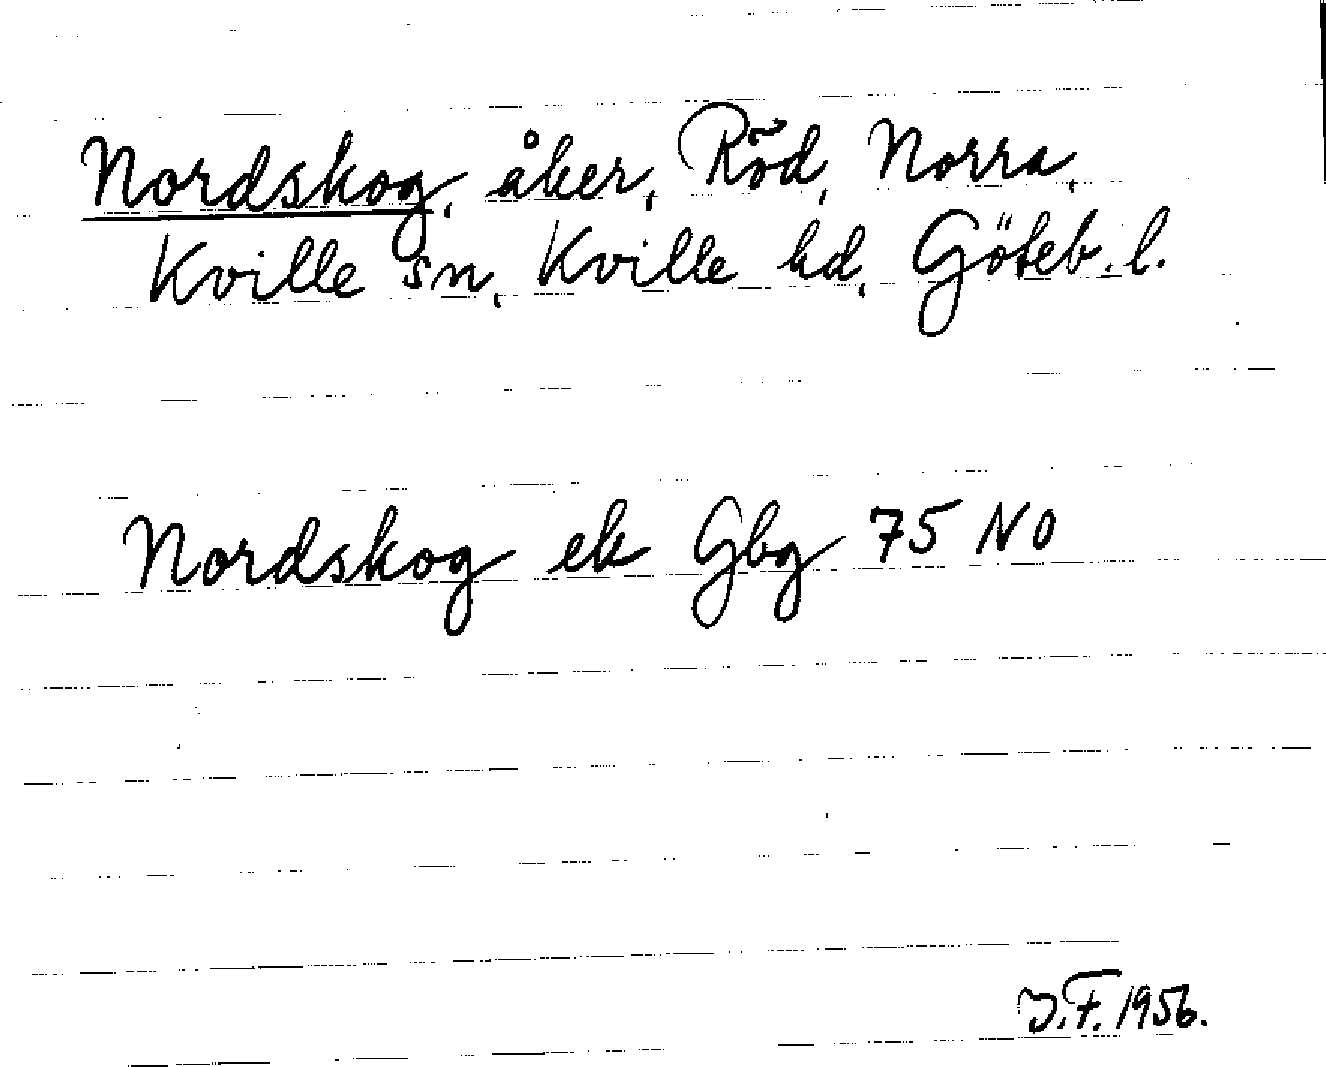 Nordskog, åker, Röd, Norra,
Kville sn, Kville hd, Göteb. l.
Nordskog ek Gbg 75 NO
J.F. 1956.